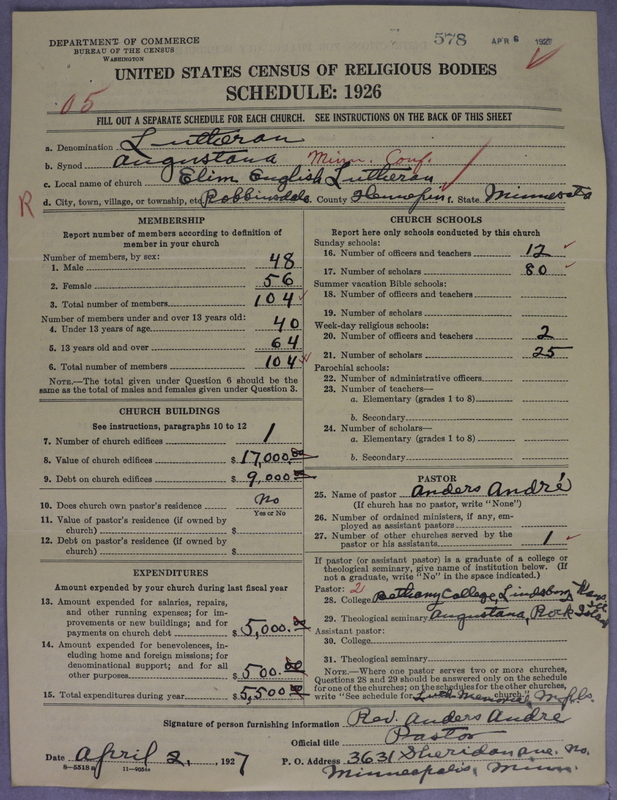 578 APR 6 1927
DEPARTMENT OF COMMERCE
BUREAU OF THE CENSUS
WASHINGTON
UNITED STATES CENSUS OF RELIGIOUS BODIES
SCHEDULE: 1926
05
FILL OUT A SEPARATE SCHEDULE FOR EACH CHURCH. SEE INSTRUCTIONS ON THE BACK OF THIS SHEET
a. Denomination Lutheran
b. Synod Augustana Minn. Conf.
c. Local name of church Elim English Lutheran
R d. City, town, village, or township, etc. Robbinsdale County Hennepin f. State Minnesota
MEMBERSHIP
Report number of members according to definition of
member in your church
Number of members, by sex:
1. Male 48
2. Female 56
3. Total number of members 104
Number of members under and over 13 years old:
4. Under 13 years of age 40
5. 13 years old and over 64
6. Total number of members 104
NOTE.—The total given under Question 6 should be the
same as the total of males and females given under Question 3.
CHURCH BUILDINGS
See instructions, paragraphs 10 to 12
7. Number of church edifices 1
8. Value of church edifices $ 17,000.00
9. Debt on church edifices $ 9,000.00
10. Does church own pastor's residence No
Yes or No
11. Value of pastor's residence (if owned by
church) $
12. Debt on pastor's residence (if owned by
church) $
EXPENDITURES
Amount expended by your church during last fiscal year
13. Amount expended for salaries, repairs,
and other running expenses; for im-
provements or new buildings; and for
payments on church debt $ 5,000.00
14. Amount expended for benevolences, in-
cluding home and foreign missions; for
denominational support; and for all
other purposes $ 500.00
15. Total expenditures during year $ 5,500.00
CHURCH SCHOOLS
Report here only schools conducted by this church
Sunday schools:
16. Number of officers and teachers 12
17. Number of scholars 80
Summer vacation Bible schools:
18. Number of officers and teachers
19. Number of scholars
Week-day religious schools:
20. Number of officers and teachers 2
21. Number of scholars 25
Parochial schools:
22. Number of administrative officers
23. Number of teachers—
a. Elementary (grades 1 to 8)
b. Secondary
24. Number of scholars—
a. Elementary (grades 1 to 8)
b. Secondary
PASTOR
25. Name of pastor Anders André
(If church has no pastor, write "None")
26. Number of ordained ministers, if any, em-
ployed as assistant pastors
27. Number of other churches served by the
pastor or his assistants 1
If pastor (or assistant pastor) is a graduate of a college or
theological seminary, give name of institution below. (If
not a graduate, write "No" in the space indicated.)
Pastor: 2
28. College Bethany College, Lindsborg Kans.
29. Theological seminary Augustana, Rock Island Ill
Assistant pastor:
30. College
31. Theological seminary
NOTE.—Where one pastor serves two or more churches,
Questions 28 and 29 should be answered only on the schedule
for one of the churches; on the schedules for the other churches,
write "See schedule for Luth. Memorial church." Mpls.
Signature of person furnishing information Rev. Anders André
Official title Pastor
Date April 2, 1927 P. O. Address 3631 Sheridan ave. No.
8—5318a 11—9054 Minneapolis, Minn.